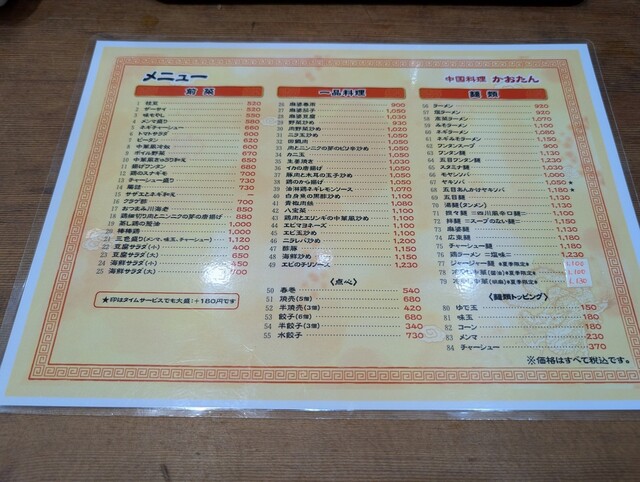 メニュー
中国料理 かおたん
前菜
1 枝豆 520
2 ザーサイ 520
3 味もやし 550
4 メンマ盛り 580
5 ネギチャーシュー 680
6 トマトサラダ 600
7 ピータン 620
8 中華風冷奴 600
9 ボイル野菜 670
11 揚げワンタン 680
12 鶏のスナギモ 700
13 チャーシュー盛り 730
14 730
15 サザエとネギ和え ―
16 クラゲ酢 700
17 おつまみ川海老 850
18 鶏細切り肉とニンニクの芽の唐揚げ 880
19 蒸し鶏の葱油 1,000
20 棒棒鶏 1,000
21 三色盛り(メンマ、味玉、チャーシュー) 1,120
22 豆腐サラダ(小) 400
23 豆腐サラダ(大)
24 海鮮サラダ(小) 450
25 海鮮サラダ(大) 700
★印はタイムサービスで大盛:+180円です
一品料理
26 麻婆春雨 900
27 麻婆茄子 1,050
28 麻婆豆腐 1,030
29 野菜炒め 930
30 肉野菜炒め 1,020
31 ニラ玉炒め 1,050
32 1,050
33 肉とニンニクの芽のピリ辛炒め 1,050
34 カニ玉 1,050
35 生姜焼き 1,030
36 イカの唐揚げ 1,050
37 豚肉と木耳の玉子炒め 1,050
38 鶏のから揚げ 1,050
39 油淋鶏ネギレモンソース 1,070
40 白身魚の黒酢炒め 1,010
41 青椒肉絲 1,080
42 八宝菜 1,100
43 鶏肉とエリンギの中華風炒め 1,100
44 エビマヨネーズ 1,100
45 エビ玉炒め 1,100
46 ニラレバ炒め 1,200
47 酢豚 1,150
48 海鮮炒め 1,150
49 エビのチリソース 1,230
〈点心〉
50 春巻 540
51 焼売(5個) 680
52 半焼売(3個) 420
53 餃子(6個) 680
54 半餃子(3個) 340
55 水餃子 730
麺類
56 ラーメン 920
57 塩ラーメン 920
58 高菜ラーメン 1,070
59 ルモラーメン 1,100
60 ネギラーメン 1,080
61 ネギルモラーメン 1,150
62 フンタンスープ 900
63 フンタン麺 1,130
64 五目フンタン麺 1,230
65 スタミナ麺 1,030
66 モヤシソバ 1,180
67 ヤキソバ 1,050★
68 五目あんかけヤキソバ 1,180★
69 五目麺 1,130
70 湯麺(タンメン) 1,030
71 担々麺 =四川風辛口麺= 1,100
72 拌麺 =スープのない麺= 1,150
73 麻婆麺 1,130
74 広東麺 1,180
75 チャーシュー麺 1,180
76 鶏ラーメン =塩味= 1,230
77 ジャージャー麺 ★夏季限定★ 1,100
78 冷やし中華(醤油)★夏季限定★ 1,130
79 冷やし中華(胡麻)★夏季限定★ 1,130
〈麺類トッピング〉
80 ゆで玉 150
81 味玉 180
82 コーン 180
83 メンマ 230
84 チャーシュー 370
※価格はすべて税込です。